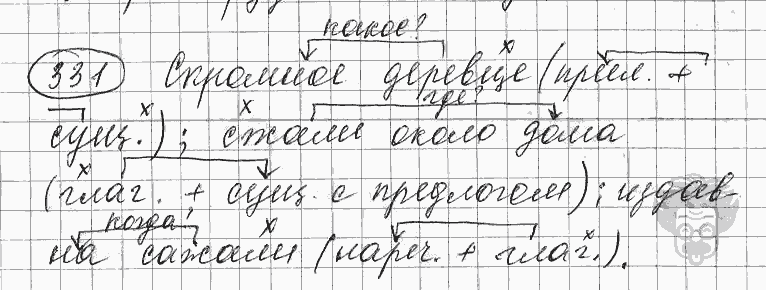 какое?
331 Скромное деревце (прил. +
где?
сущ.); сжали около дома
(глаг. + сущ. с предлогом); издав-
когда?
на сажали (нареч. + глаг.).